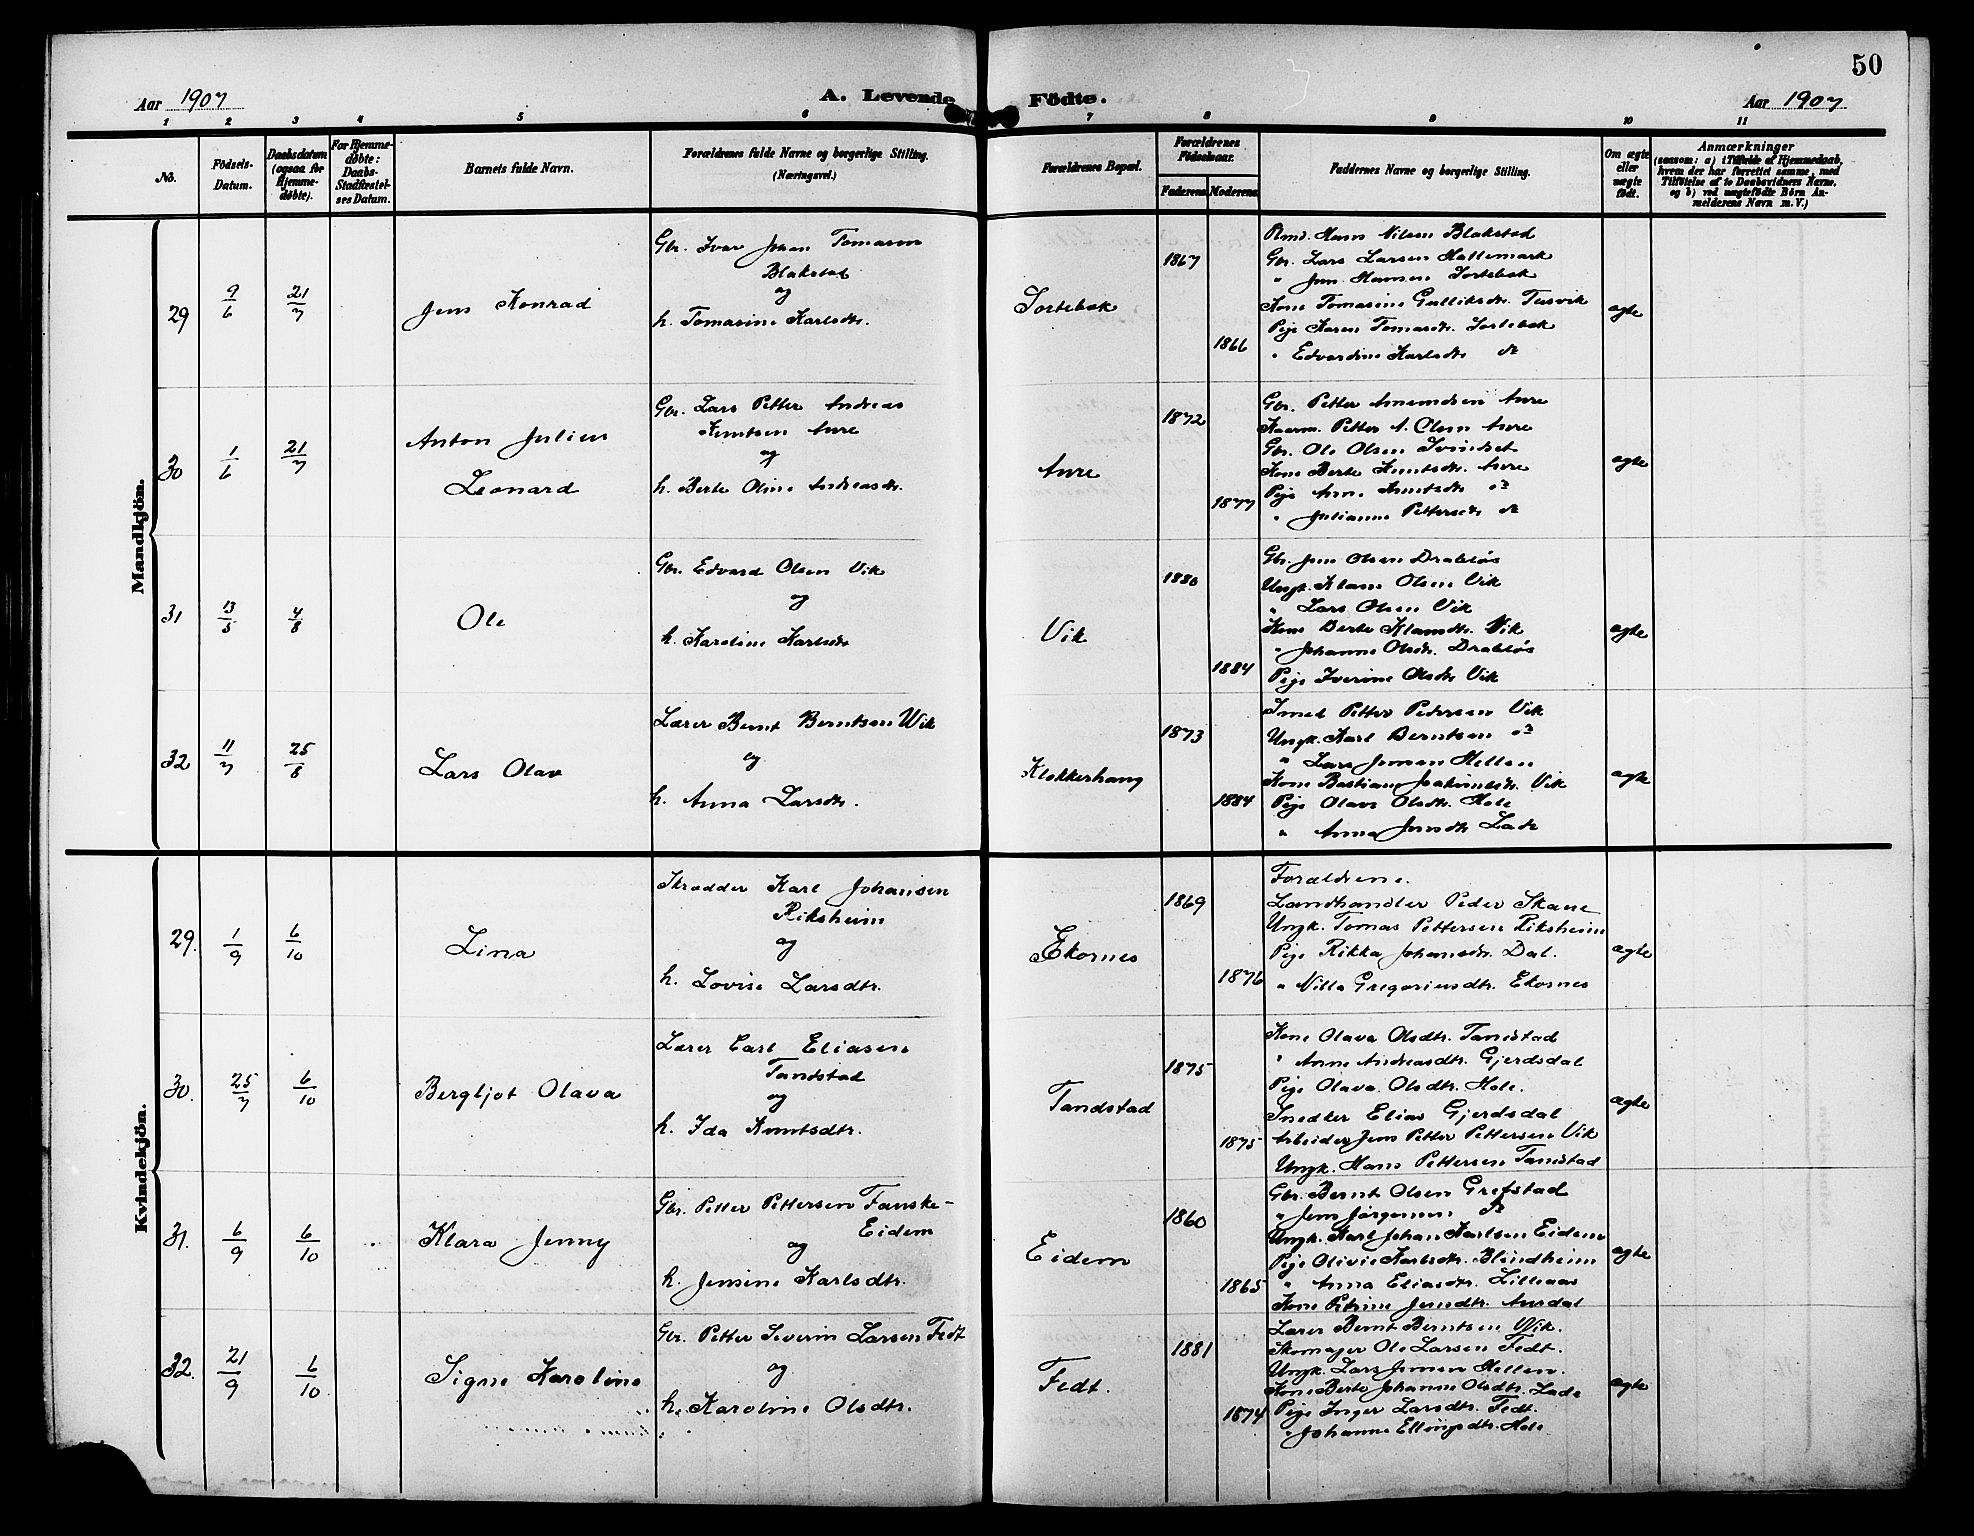 50
Aar 1907
A. Levende Födte.
Aar 1907
1 2 3 4 5 6 7 8 9 10 11
No.
Födsels-
Datum.
Daabsdatum
(ogsaa for
Hjemme-
døbte).
For Hjemme-
døbte:
Daabs-
Stadfæstel-
ses Datum.
Barnets fulde Navn.
Forældrenes fulde Navne og borgerlige Stilling.
(Næringsvei.)
Forældrenes Bopæl.
Forældrenes
Födselsaar.
Faderens
Moderens
Faddernes Navne og borgerlige Stilling.
Om ægte
eller
uægte
født.
Anmærkninger
(saasom: a) i Tilfælde af Hjemmedaab,
hvem der har forrettet samme, med
Tilföielse af to Daabsvidners Navne,
og b) ved uægtefödte Börn An-
melderens Navn m. V.)
Mandkjön.
29
9/6
21/7
Jens Konrad
Gbr. Ivar Johan Tomassen
Blakstad
og
h. Tomasine Karlsdtr.
Sortebak
1867
1866
Hans Nilsen Blakstad
Gbr. Lars Larsen Hattemark
" Jens Hansen Sortebak
Kone Tomasine Gulliksdtr. Tusvik
Pige Karen Tomasdtr. Sortebak
" Edvardine Karlsdtr do
ægte
30
1/6
21/7
Anton Julius
Leonard
Gbr. Lars Petter Andreas
Knutsen Aure
og
h. Berte Oline Andreasdtr.
Aure
1872
1877
Gbr. Petter Amundsen Aure
Petter A. Olsen Aure
Gbr. Ole Olsen Svindset
Kone Berte Knutsdtr. Aure
Pige Anne Knutsdtr do
" Julianne Pettersdtr do
ægte
31
13/5
4/8
Ole
Gbr. Edvard Olsen Vik
og
h. Karoline Karlsdtr
Vik
1880
1884
Gbr. Jens Olsen Drabløs
Ungk. Klaus Olsen Vik
" Lars Olsen Vik
Kone Berte Klausdtr. Vik
" Johanne Olsdtr. Drabløs
Pige Iverine Olsdtr Vik
ægte
32
11/7
25/8
Lars Olav
Lærer Bernt Berntsen Wik
og
h. Anna Larsdtr.
Klokkerhaug
1873
1884
Smed Petter Pedersen Vik
Ungk. Karl Berntsen do
" Lars Jensen Hellen
Kone Bastiane Joakimsdtr. Vik
Pige Olava Olsdtr. Hole
" Anna Jensdtr Lade
ægte
Kvindekjön.
29.
1/9
6/10
Lina
Skrædder Karl Johansen
Riksheim
og
h. Lovise Larsdtr.
Ekornes
1869
1876
Forældrene.
Landhandler Peder Skaue
Ungk. Tomas Pettersen Riksheim
Pige Rikka Johansdtr. Dal.
" Nilla Gregoriusdtr. Ekornes
ægte
30.
25/7
6/10
Bergljot Olava
Lærer Carl Eliasen
Tandstad
og
h. Ida Knutsdtr.
Tandstad
1875
1875
Kone Olava Olsdtr. Tandstad
" Anne Andreasdtr. Gjerdsdal
Pige Olava Olsdtr. Hole.
Snedker Elias Gjerdsdal
Arbeider Jens Petter Pettersen Vik
Ungk. Hans Pettersen Tandstad
ægte
31.
6/9
6/10
Klara Jenny
Gbr. Petter Pettersen Fauske-
Eidem
og
h. Jensine Karlsdtr.
Eidem
1860
1865
Gbr. Bernt Olsen Grefstad
" Jens Jørgensen do
Ungk. Karl Johan Karlsen Eidem
Pige Olivie Karlsdtr. Blindheim
" Anna Eliasdtr. Lilleaas
Kone Petrine Jensdtr. Aursdal
ægte
32.
21/9
6/10
Signe Karoline
Gbr. Petter Severin Larsen Fedt
og
h. Karoline Olsdtr.
Fedt.
1881
1874
Lærer Bernt Berntsen Wik.
Skomager Ole Larsen Fedt.
Ungk. Lars Jensen Hellen.
Kone Berte Johanne Olsdtr. Lade
Pige Inger Larsdtr. Fedt.
" Johanne Ellingsdtr. Hole
ægte